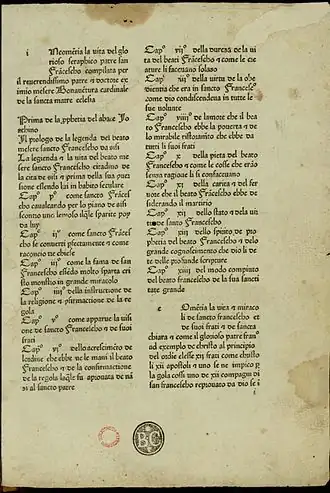 i Ncomẽcia la uita del glo
rioso seraphico patre san
Frãcescho compilata per
il reuerendissimo patre et doctore ex
imio mesere Bonauẽtura cardinale
de la sancta matre eclesia
Prima de la pphetia del abate Jo
achino
Il prologo de la legenda del beato
mesere sancto Francescho da asisi
La legenda et la uita del beato me
sere sancto Francescho citadino de
la cita de asisi et prima della sua cõuer
sione essendo lui in habito seculare
Capº pº come sancto Frãces
cho caualcando per lo piano de asisi
scontro uno leproso
da luy
Capº ijº come sancto Frãces
cho se conuerti pfectamente et come
racõcio tre chiesie
Capº iijº come la fama de san
Francescho essẽdo molto sparta cri
sto monstro in grande miracolo
Capº iiijº della instructione de
la religione et cõfirmactione de la re
gola
Capº vº come apparue la uisi
one de sancto Francescho et de suoi
frati
Capº vjº dello acrescimẽto de
le uirtude che ebbe ne le mani il beato
Francescho et de la confirmactione
de la regola laq̃le fu aprouata de nã
zi al sancto patre
Capº vijº della dureza de la ui
ta del beati Frãcescho et come le cre
ature li faceuano solaso
Capº viijº della uirtu de la obe
dientia che era in sancto Francesco
come dio condiscendeua in tutte le
sue uolunte
Capº viiijº de lamore che il bea
to Francescho ebbe la pouerta et de lo
mirabile ristoramẽto che ebbe da
tutti li suoi frati
Capº X della pieta del beato
Francescho et come le cosse che erão
senza ragione li si confaceuano
Capº XI della carita et del fer
uore che il beato Francescho ebbe de
siderando il martirio
Capº XII dello stato et dela uir
tu de sancto Francescho
Capº XIII dello spirito de pro
phetia del beato Francescho et delo
grande cognoscimento che dio li de
de delle profunde scripture
Capº XIIII del modo compiuto
del beato francescho de la sua sancti
tate grande
c Omẽcia la uita et miraco
li de sancto francescho et
de suoi frati et de sancta
chiara et come il glorioso patre fran
ad exemplo de christo al principio
del ordie elesse XII frati come christo
li XII apostoli et uno se ne impico p
la gola cossi uno de XII compagni di
san francescho reprouato da dio se i
i